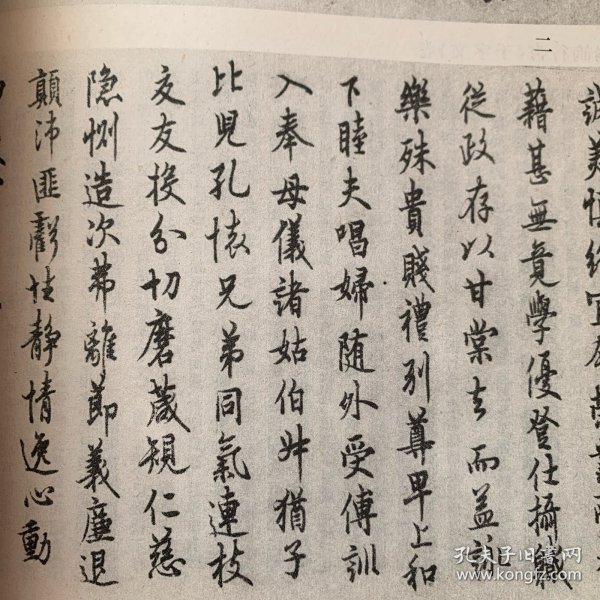 二
誠美慎終宜
籍甚無竟學優登仕攝職
從政存以甘棠去而益詠
樂殊貴賤禮别尊卑上和
下睦夫唱婦随外受傅訓
入奉母儀諸姑伯叔猶子
比兒孔懐兄弟同氣連枝
交友投分切磨箴規仁慈
隐惻造次弗離節義廉退
顛沛匪虧性靜情逸心動
孔夫子旧書网
www.kongfz.com